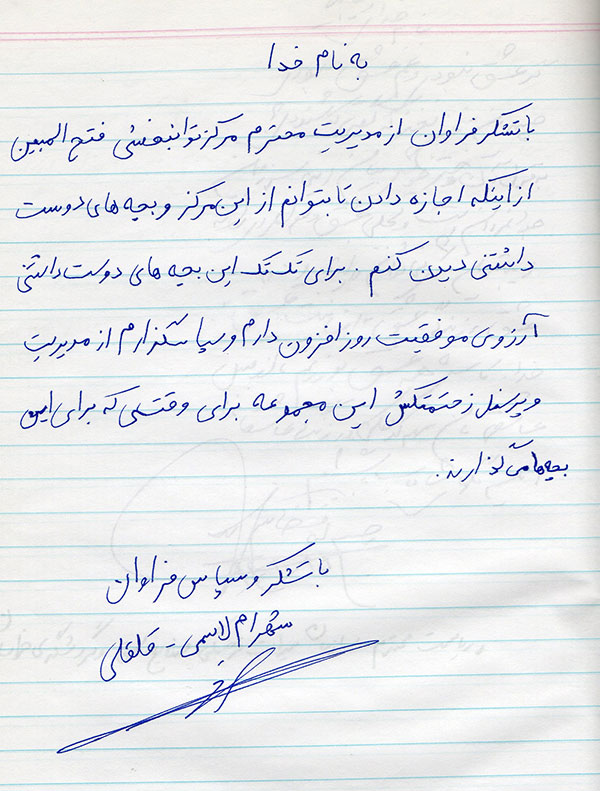 به نام خدا
با تشکر فراوان از مدیریت محترم مرکز توانبخشی فتح المبین
از اینکه اجازه دادن تا بتوانم از این مرکز و بچه های دوست
داشتنی دیدن کنم. برای تک تک این بچه های دوست داشتنی
آرزوی موفقیت روز افزون دارم و سپاسگذارم از مدیریت
و پرسنل زحمتکش این مجموعه برای وقتی که برای این
بچه ها می گذارند.
با تشکر و سپاس فراوان
شهرام لاسمی - قلقلی